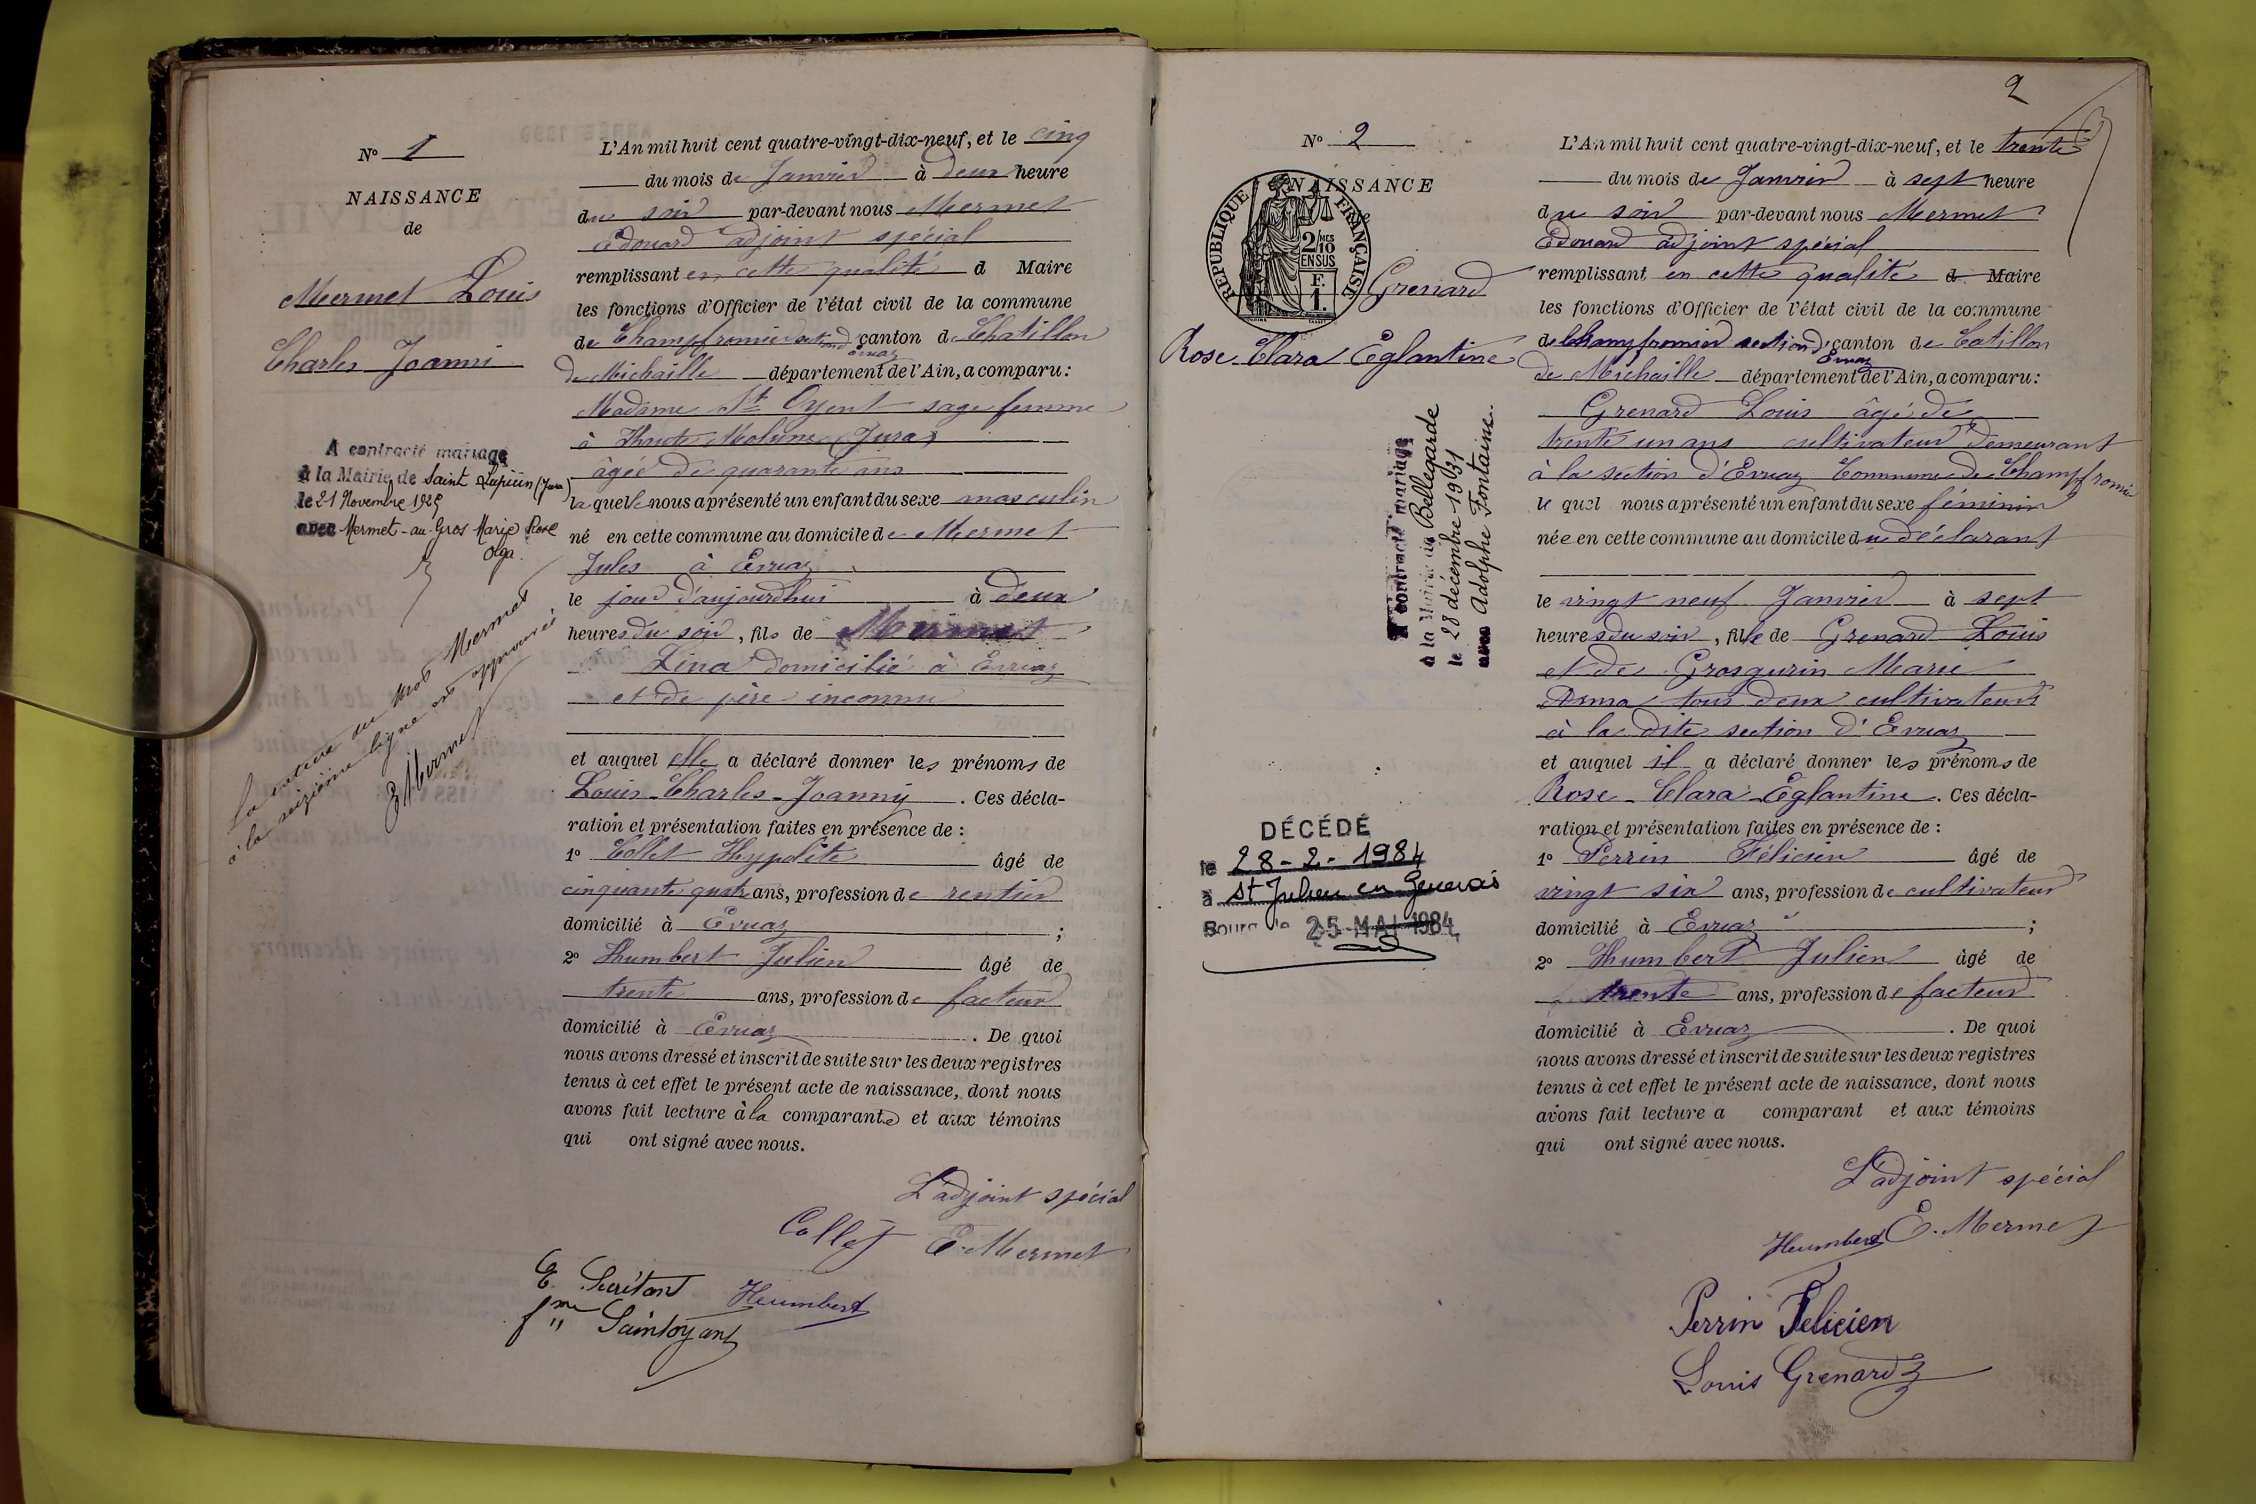 N° 1
NAISSANCE
de
Mermet Louis
Charles Joanni
A contracté mariage
à la Mairie de Saint Lupicin (Jura)
le 21 Novembre 1925
avec Mermet-au-Gros Marie Rose
Olga
La rature du mot Mermet
à la seizième ligne est approuvée
E. Mermet
L'An mil huit cent quatre-vingt-dix-neuf, et le cinq
du mois de Janvier à deux heure
du soir par-devant nous Mermet
Edouard adjoint spécial
remplissant en cette qualité d Maire
les fonctions d'Officier de l'état civil de la commune
de Champfromier section d'Evuaz canton de Chatillon
de Michaille département de l'Ain, a comparu :
Madame St Oyent sage femme
à Haute Molune (Jura)
âgée de quarante ans
laquelle nous a présenté un enfant du sexe masculin
né en cette commune au domicile de Mermet
Jules à Evuaz
le jour d'aujourdhui à deux
heures du soir, fils de Mermet
Lina domicilié à Evuaz
et de père inconnu
et auquel elle a déclaré donner les prénoms de
Louis-Charles-Joanny. Ces décla-
ration et présentation faites en présence de :
1° Collet Hypolite âgé de
cinquante quatre ans, profession de rentier
domicilié à Evuaz ;
2° Humbert Julien âgé de
trente ans, profession de facteur
domicilié à Evuaz. De quoi
nous avons dressé et inscrit de suite sur les deux registres
tenus à cet effet le présent acte de naissance, dont nous
avons fait lecture à la comparante et aux témoins
qui ont signé avec nous.
L'adjoint spécial
Collet E. Mermet
E. Secrétant Humbert
fme Saintoyant
2
N° 2
NAISSANCE
RÉPUBLIQUE FRANÇAISE
2/10 MES
EN SUS
F.
1.
Grenard
Rose Clara Eglantine
A contracté mariage
à la Mairie de Bellegarde
le 28 décembre 1931
avec Adolphe Fontaine.
DÉCÉDÉ
le 28-2-1984
à St Julien en Genevois
Bourg le 25 MAI 1984
L'An mil huit cent quatre-vingt-dix-neuf, et le trente
du mois de Janvier à sept heure
du soir par-devant nous Mermet
Edouard adjoint spécial
remplissant en cette qualité d Maire
les fonctions d'Officier de l'état civil de la commune
de Champfromier section d'Evuaz canton de Catillon
de Michaille département de l'Ain, a comparu :
Grenard Louis âgé de
trente un ans cultivateur demeurant
à la section d'Evuaz Commune de Champfromier
le quel nous a présenté un enfant du sexe féminin
née en cette commune au domicile du déclarant
le vingt neuf Janvier à sept
heures du soir, fille de Grenard Louis
et de Grosgurin Marie
Anna tous deux cultivateurs
à la dite section d'Evuaz
et auquel il a déclaré donner les prénoms de
Rose-Clara-Eglantine. Ces décla-
ration et présentation faites en présence de :
1° Perrin Félicien âgé de
vingt six ans, profession de cultivateur
domicilié à Evuaz ;
2° Humbert Julien âgé de
trente ans, profession de facteur
domicilié à Evuaz. De quoi
nous avons dressé et inscrit de suite sur les deux registres
tenus à cet effet le présent acte de naissance, dont nous
avons fait lecture a comparant et aux témoins
qui ont signé avec nous.
L'adjoint spécial
Humbert E. Mermet
Perrin Felicien
Louis Grenard